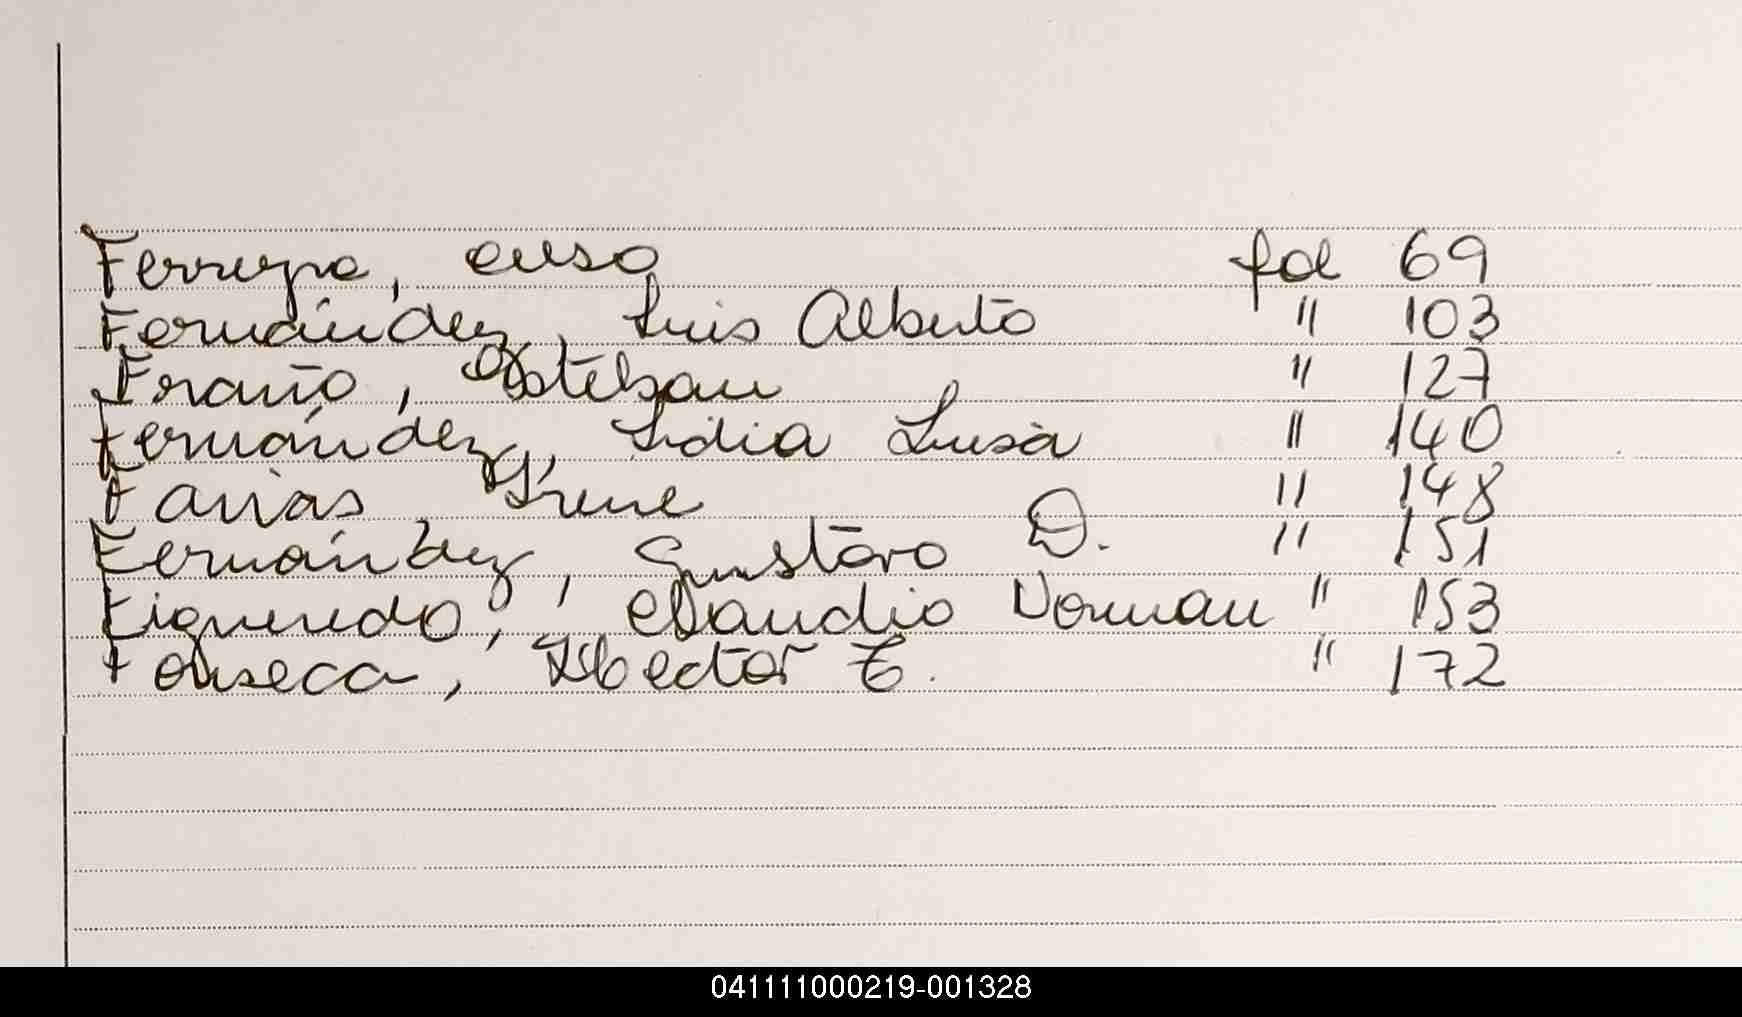 Ferreyra, Celso fol 69
Fernández, Luis Alberto " 103
Fraño, Esteban " 127
Fernández, Lidia Luisa " 140
Farias Irene " 148
Fernández, Gustavo D. " 151
Figueredo, Claudio Norman " 153
Fonseca, Hector E. " 172
041111000219-001328